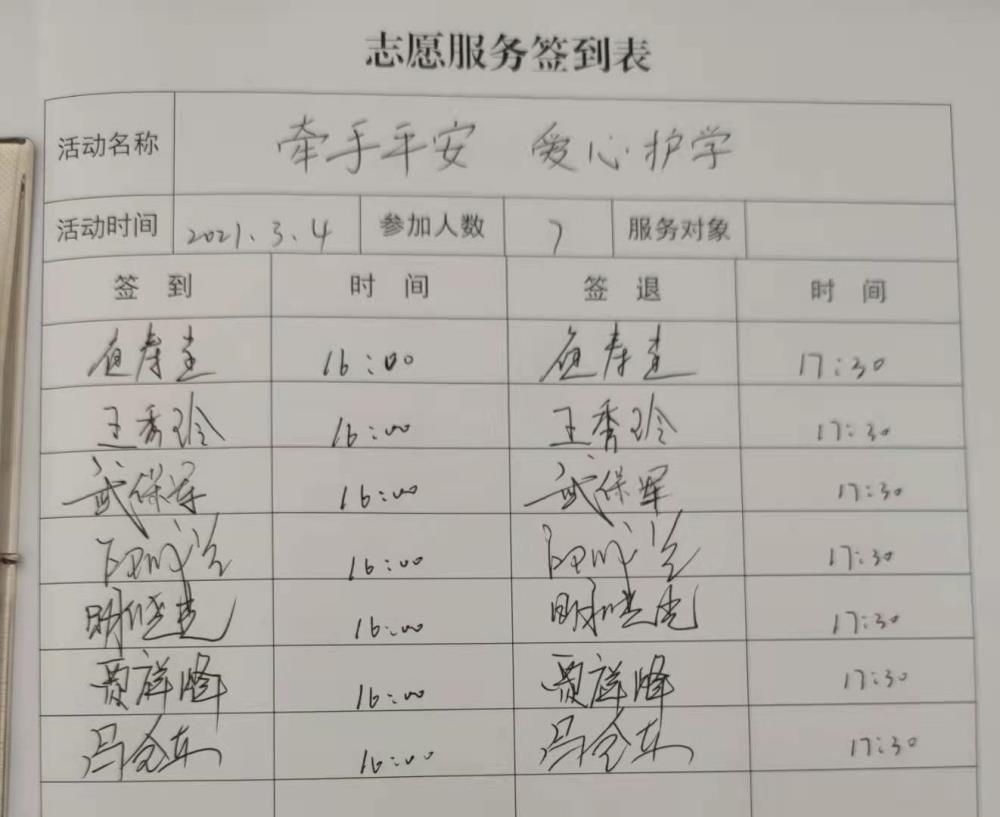 志愿服务签到表
活动名称 牵手平安 爱心护学
活动时间 2021.3.4 参加人数 7 服务对象
签到 时间 签退 时间
16:00 17:30
王秀玲 16:00 王秀玲 17:30
武保军 16:00 武保军 17:30
16:00 17:30
16:00 17:30
贾祥峰 16:00 贾祥峰 17:30
冯全东 16:00 冯全东 17:30